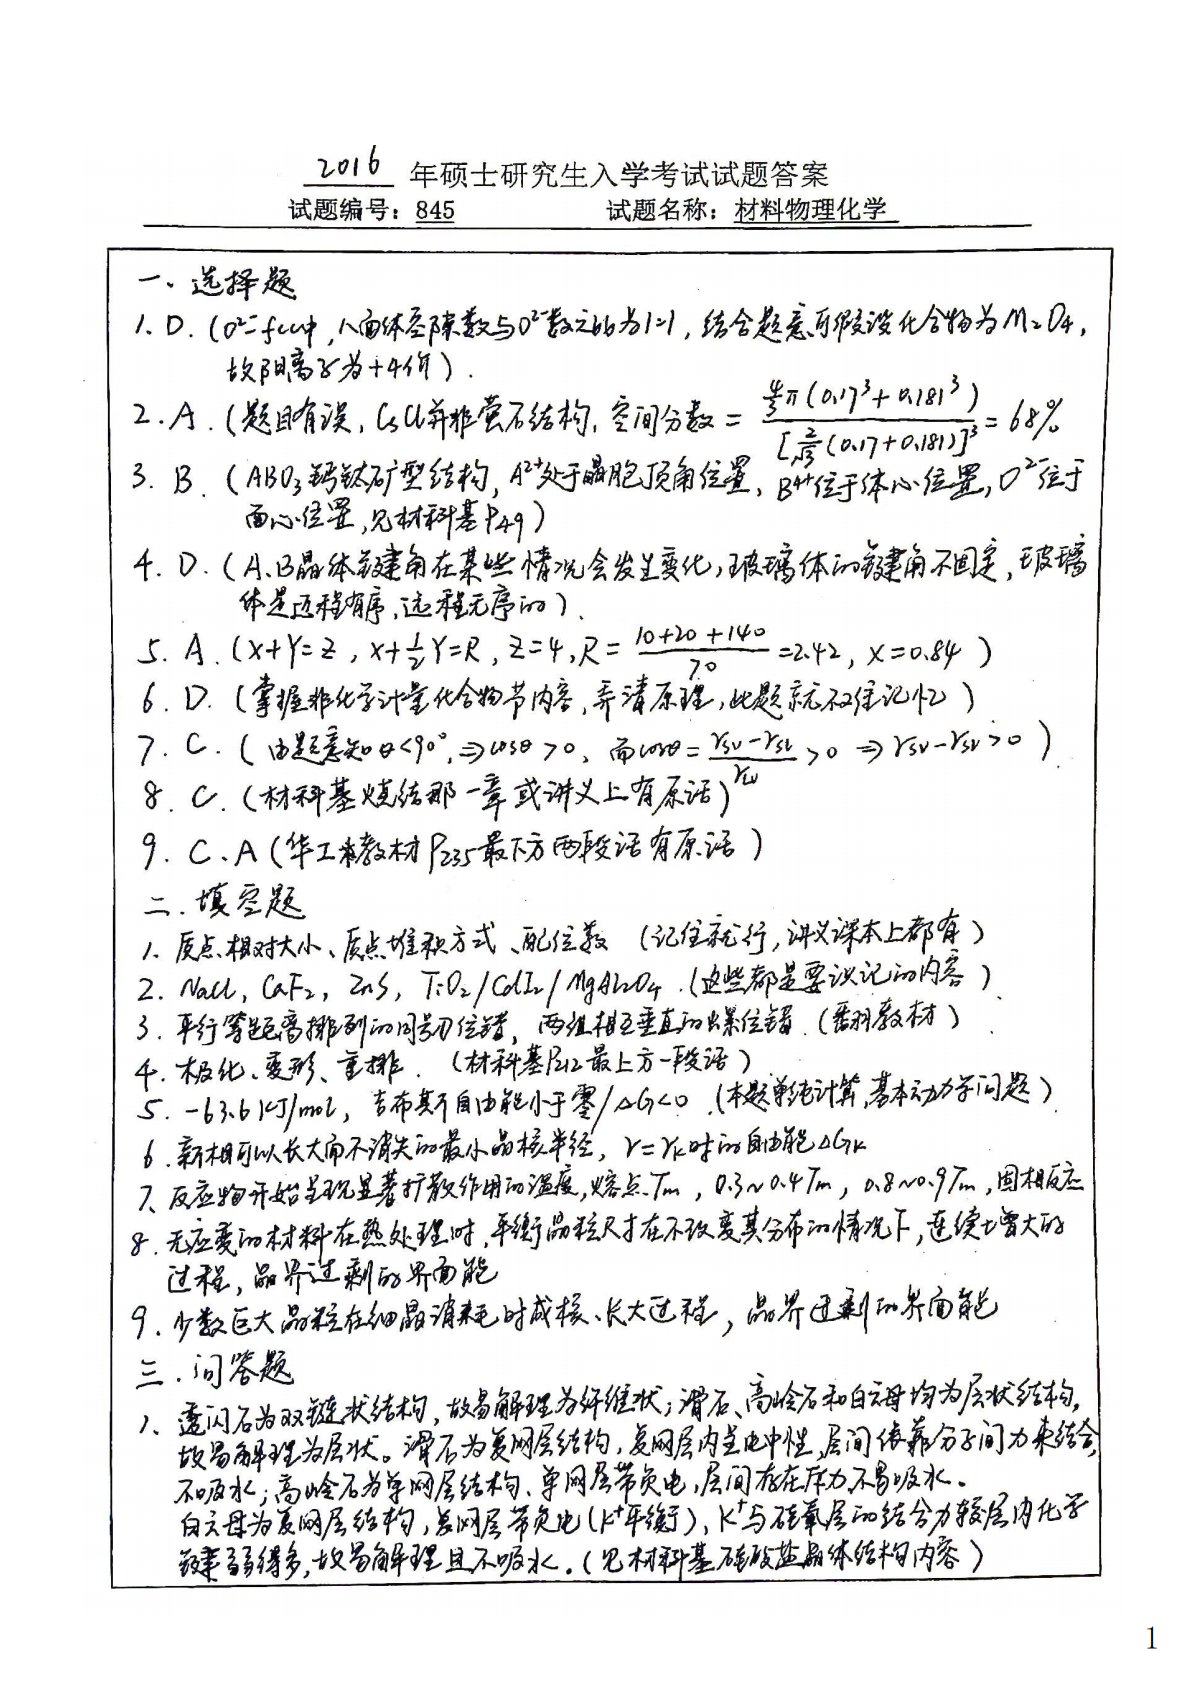 2016 年硕士研究生入学考试试题答案
试题编号：845 试题名称：材料物理化学
一、选择题
1. D.（O²⁻fcc中，八面体空隙数与O²⁻数之比为1:1，结合题意可假设化合物为M₂O₄，
故阳离子为+4价）.
2. A.（题目有误，CsCl并非萤石结构，空间分数 = 4/3π(0.17³+0.181³) / [2/√3(0.17+0.181)]³ = 68%
3. B.（ABO₃钙钛矿型结构，A²⁺处于晶胞顶角位置，B⁴⁺位于体心位置，O²⁻位于
面心位置，见材科基P49）
4. D.（A、B晶体键角在某些情况会发生变化，玻璃体的键角不固定，玻璃
体是近程有序，远程无序的）.
5. A.（X+Y=Z，X+½Y=R，Z=4，R= (10+20+140)/70 =2.42，X=0.84）
6. D.（掌握非化学计量化合物节内容，弄清原理，此题就不仅记忆）
7. C.（由题意知θ<90°，⇒cosθ>0，而cosθ= (γsv-γsl)/γlv >0 ⇒ γsv-γsl>0）.
8. C.（材科基烧结那一章或讲义上有原话）
9. C.A（华工教材P235最下方两段话有原话）
二.填空题
1. 质点相对大小、质点堆积方式、配位数 （记住就行，讲义课本上都有）
2. NaCl, CaF₂, ZnS, TiO₂/CdI₂/MgAl₂O₄.（这些都是要识记的内容）
3. 平行等距离排列的同号刃位错，两组相互垂直的螺位错.（教材）
4. 极化、变形、重排.（材科基P212最上方一段话）
5. -63.6KJ/mol，吉布斯自由能小于零/△G<0.（本题单纯计算，基本动力学问题）
6. 新相可以长大而不消失的最小晶核半径，r=rk时的自由能△Gk
7. 反应物开始呈现显著扩散作用的温度，熔点Tm，0.3~0.4Tm，0.8~0.9Tm，固相反应
8. 无应变的材料在热处理时，平衡晶粒尺寸在不改变其分布的情况下，连续增大的
过程，晶界过剩的界面能
9. 少数巨大晶粒在细晶消耗时成核、长大过程，晶界过剩的界面能
三.问答题
1、透闪石为双链状结构，故易解理为纤维状；滑石、高岭石和白云母均为层状结构，
故易解理为层状。滑石为复网层结构，复网层内呈电中性，层间依靠分子间力来结合，
不吸水；高岭石为单网层结构、单网层带负电，层间存在库力不易吸水。
白云母为复网层结构，复网层带负电(K⁺平衡)，K⁺与硅氧层的结合力较层内化学
键弱得多，故易解理且不吸水.（见材科基硅酸盐晶体结构内容）
1